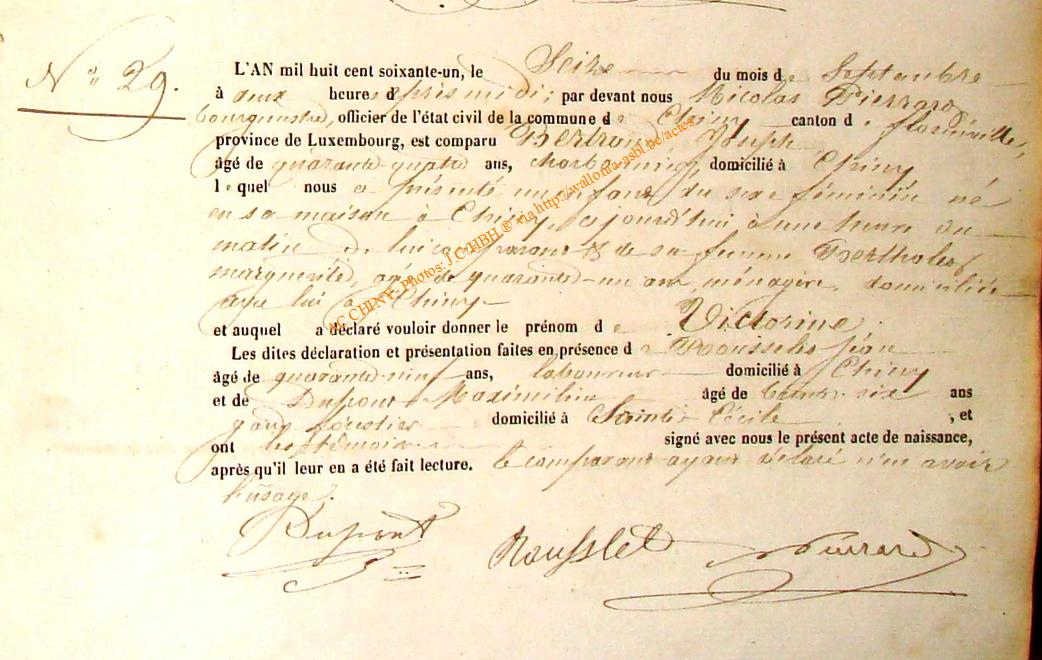 N° 29.
L'AN mil huit cent soixante-un, le Seize du mois de Septembre
à deux heures après midi; par devant nous Nicolas Pierrard
bourgmestre, officier de l'état civil de la commune de Chiny canton de florenville,
province de Luxembourg, est comparu Joseph
âgé de quarante quatre ans, domicilié à Chiny
lequel nous a présenté un enfant du sexe féminin né
en sa maison à Chiny, ajourd'hui à une heure du
matin de lui comparant & de sa femme
marguerite, agée de quarante-un ans, ménagère, domiciliée
avec lui à Chiny
et auquel a déclaré vouloir donner le prénom de Victorine.
Les dites déclaration et présentation faites en présence de Jean
âgé de quarante-neuf ans, laboureur domicilié à Chiny
et de Dupont Maximilien âgé de trente six ans
garde forestier domicilié à Sainte Cécile, et
ont les témoins signé avec nous le présent acte de naissance,
après qu'il leur en a été fait lecture. le comparant ayant déclaré n'en avoir
l'usage.
Dupont Rousslet Pierrard
AC CHINY, Photos: J.C. HBH ® via http://wallonia-asbl.be/actes